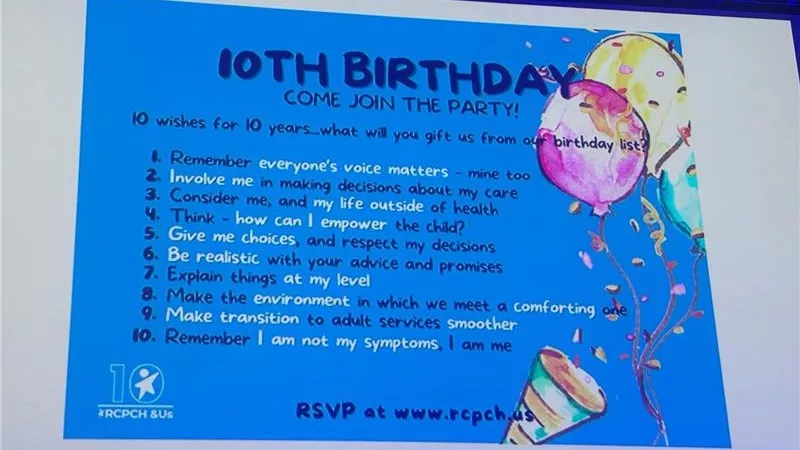 10TH BIRTHDAY
COME JOIN THE PARTY!
10 wishes for 10 years...what will you gift us from our birthday list?
1. Remember everyone's voice matters - mine too
2. Involve me in making decisions about my care
3. Consider me, and my life outside of health
4. Think - how can I empower the child?
5. Give me choices, and respect my decisions
6. Be realistic with your advice and promises
7. Explain things at my level
8. Make the environment in which we meet a comforting one
9. Make transition to adult services smoother
10. Remember I am not my symptoms, I am me
10
#RCPCH &Us
RSVP at www.rcpch.us